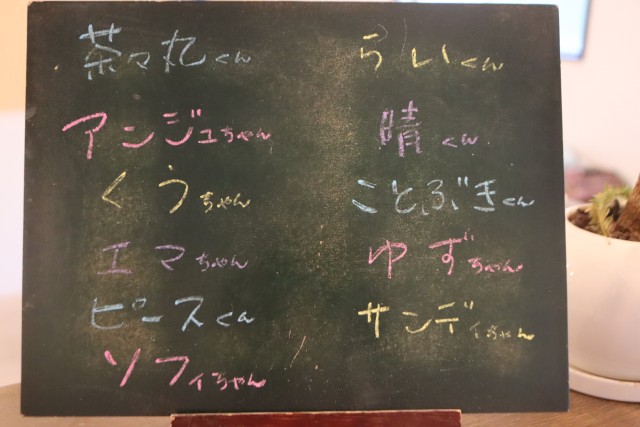 茶々丸くん
アンジュちゃん
くうちゃん
エマちゃん
ピースくん
ソフィちゃん
らいくん
晴くん
ことぶきくん
ゆずちゃん
サンディちゃん